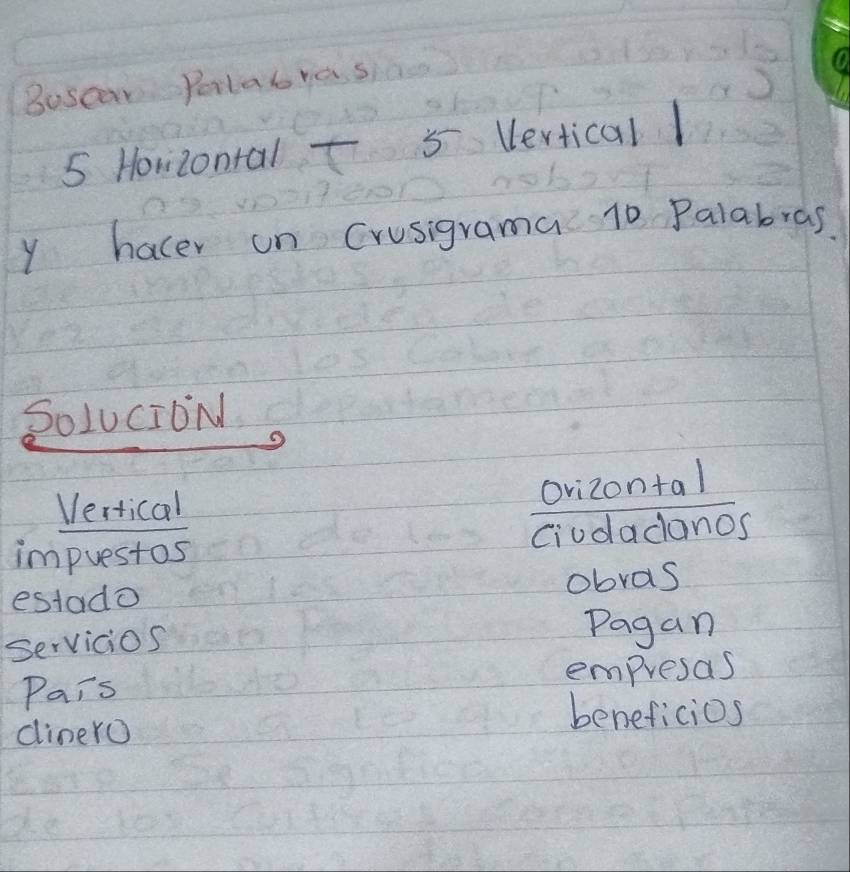 Buscar Palabras
5 Horizontal — 5 Vertical |
y hacer un Crusigrama 10 Palabras.
SOLUCIÓN
Vertical
impuestos
estado
servicios
País
dinero
Orizontal
Ciudadanos
obras
Pagan
empresas
beneficios